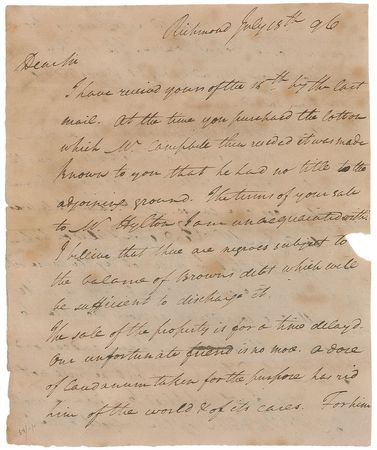 Richmond July 18th 96
Dear Sir
I have received yours of the 16th by the last
mail. At the time you purchased the lotton
which Mr Campbell then resided it was made
known to you that he had no title to the
adjoining ground. The terms of your sale
to Mr Hylton I am unacquainted with
I believe that there are negroes subject to
the balance of Browns debt which will
be sufficient to discharge it.
The sale of the property is for a time delayd.
Our unfortunate friend is no more. A dose
of Laudanum taken for the purpose has rid
him of the world & of its cares. For him